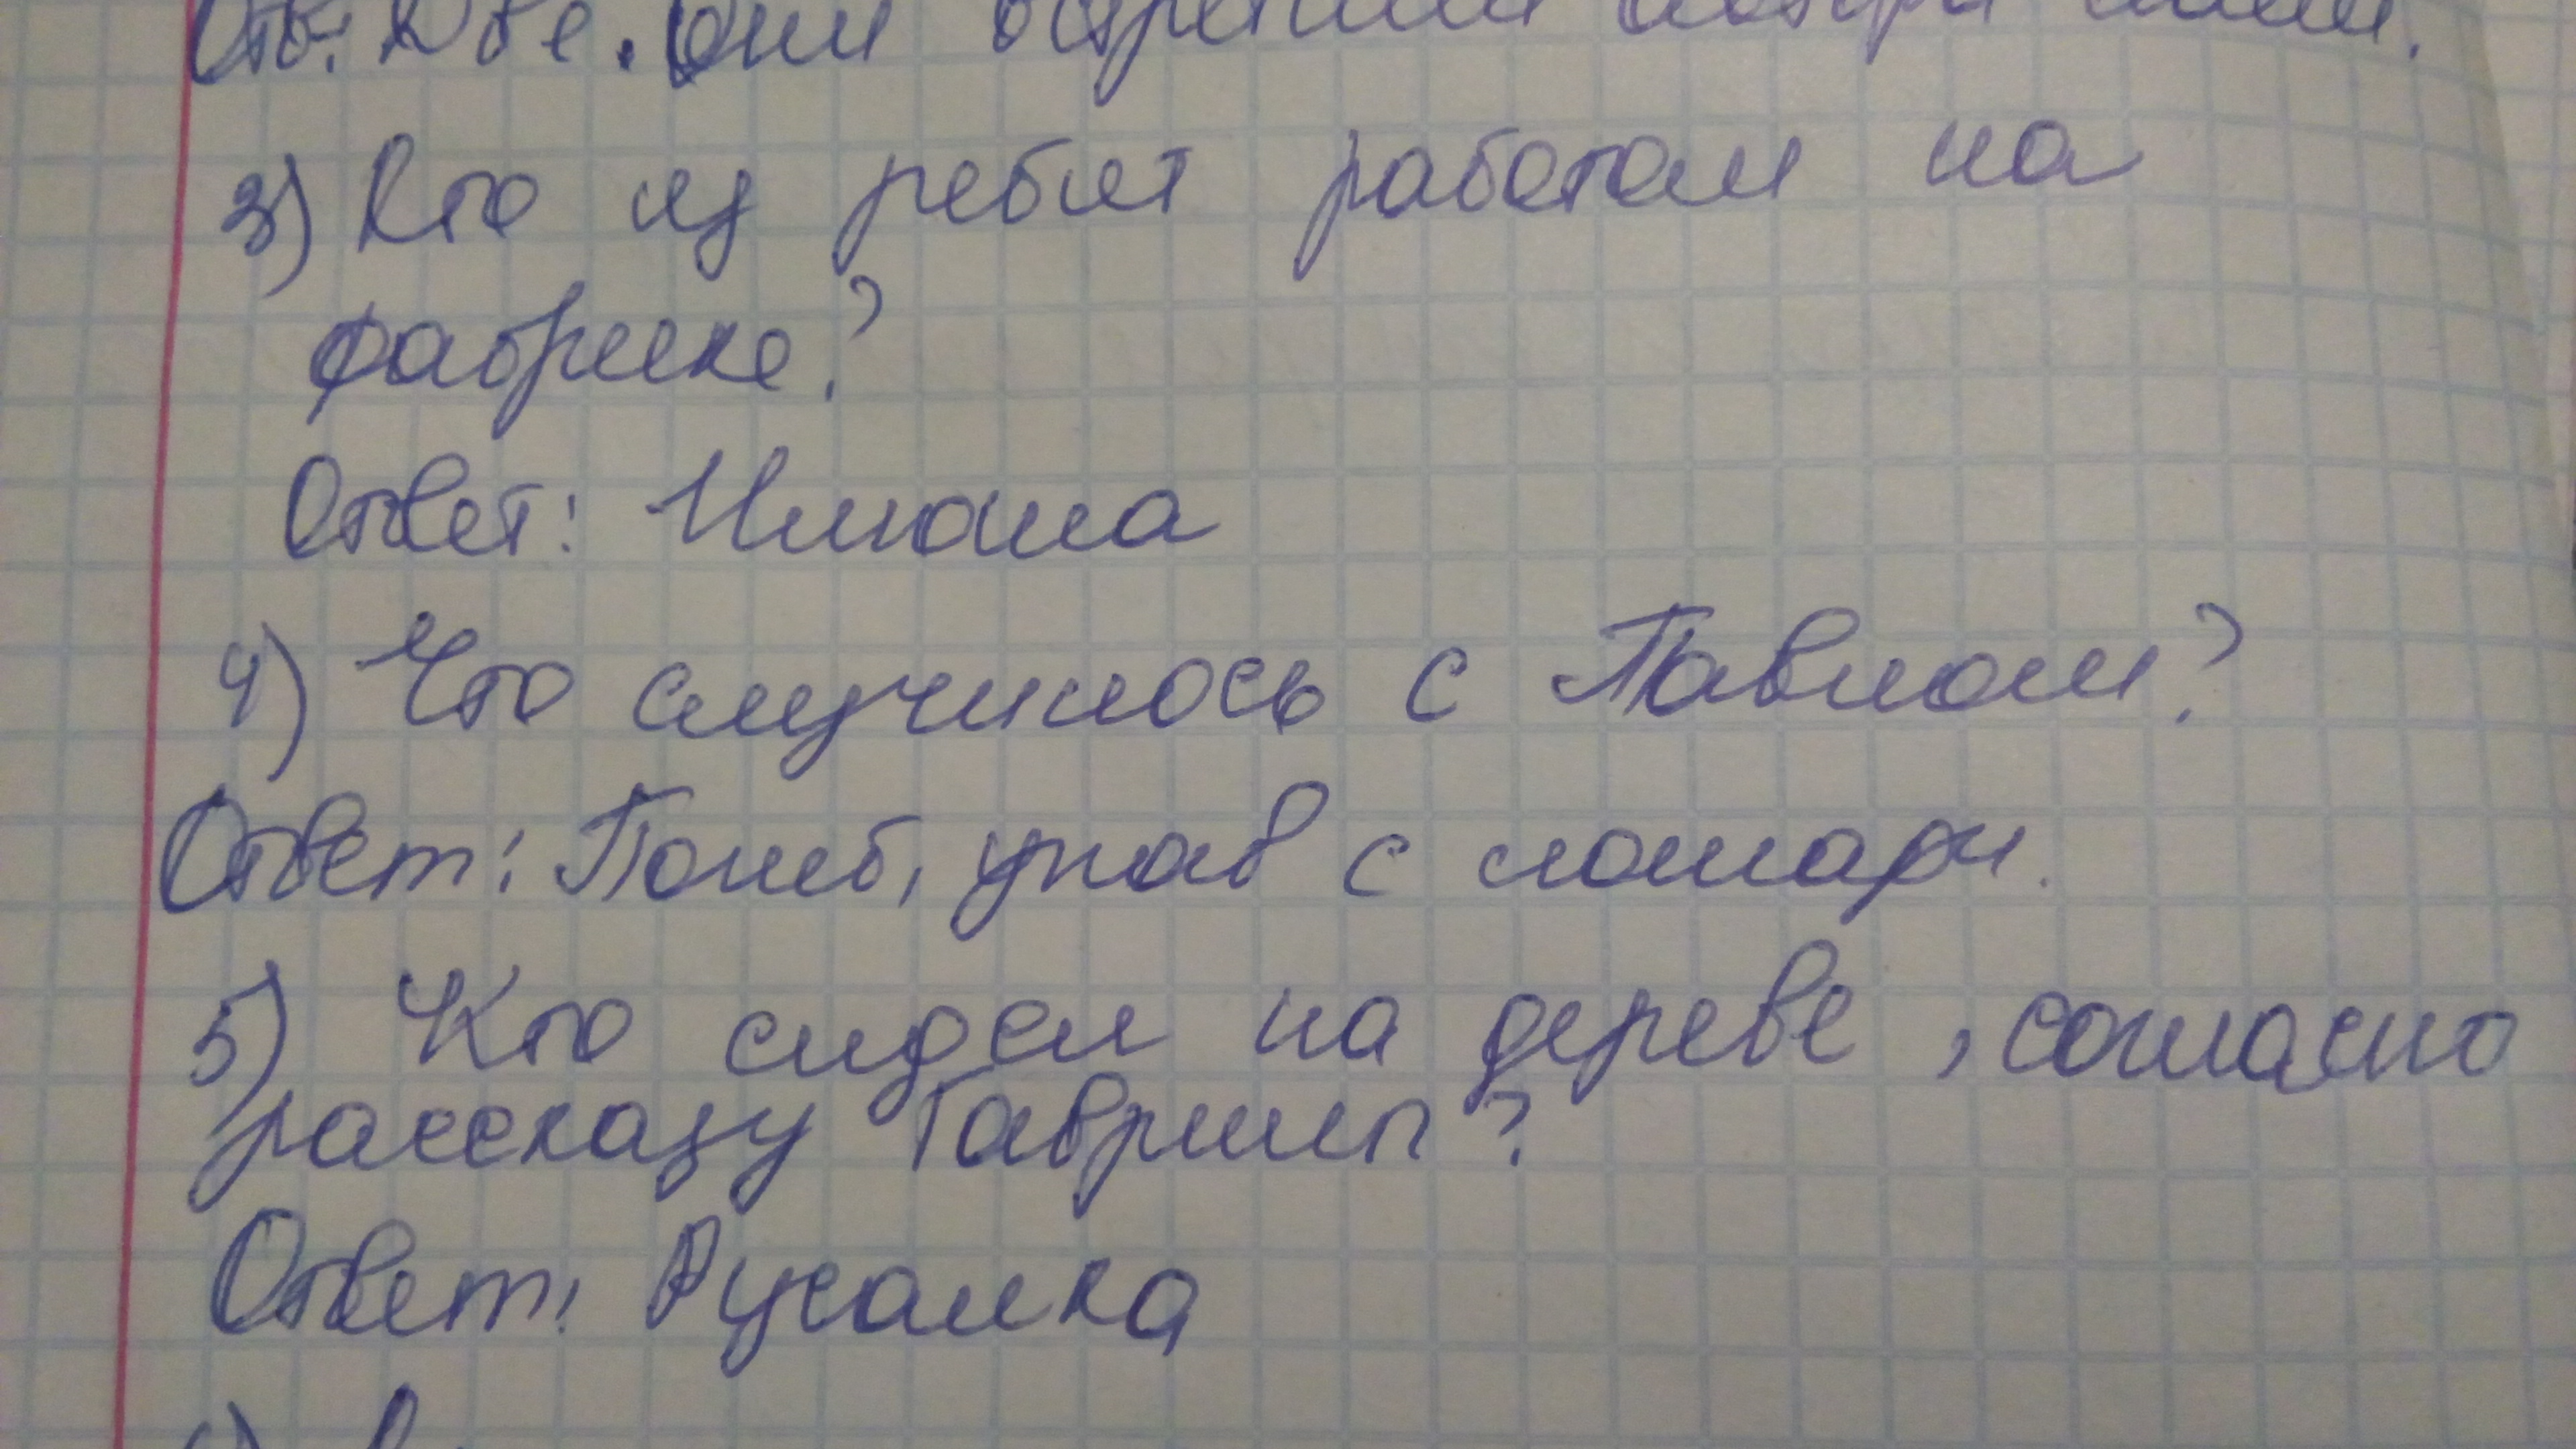 Отв: Две. Они встретили
3) Кто из ребят работал на
фабрике?
Ответ: Илюша
4) Что случилось с Павлом?
Ответ: Погиб, упав с лошади.
5) Кто сидел на дереве, согласно
рассказу Гаврилы?
Ответ: Русалка